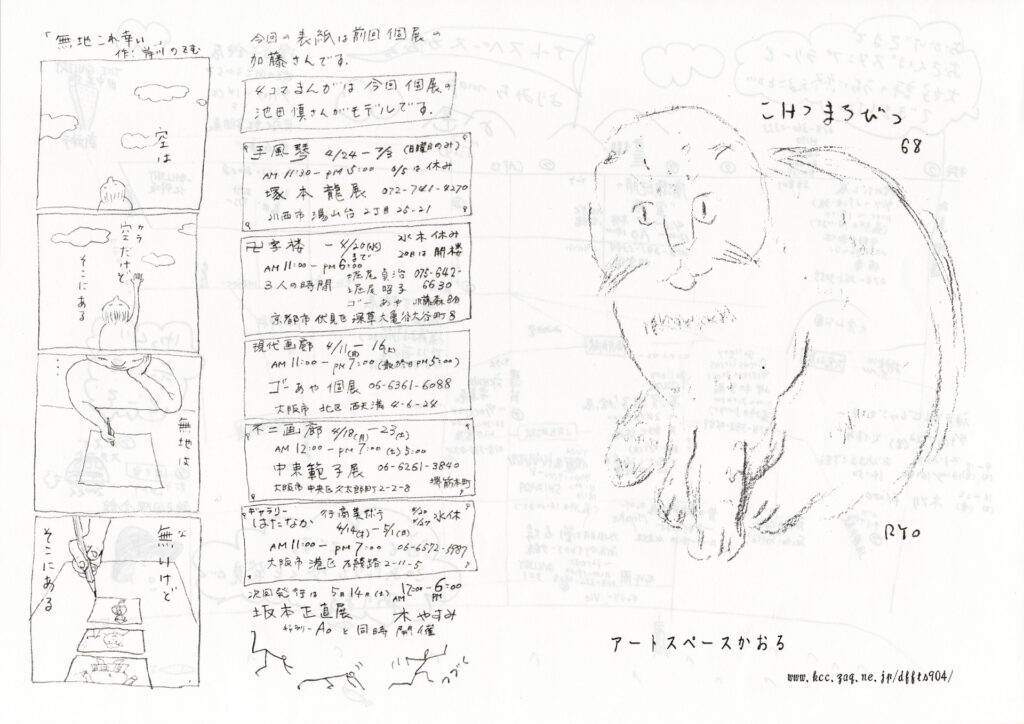 「無地これ幸い
空は
空だけど
そこにある
無地は
無いけど
そこにある
今回の表紙は前回個展の
加藤さんです。
4コマまんがは 今回個展の
池田慎さんがモデルです。
手風琴 4/24-7/3 (日曜日のみ)
AM11:30-PM5:00 6/5は休み
塚本龍展 072-741-4270
川西市湯山台2丁目25-21
卍字楼 -4/20(水)まで 水木休み
20日は開楼
AM11:00-PM6:00
3人の時間
堀尾貞治 075-642-6630
堀尾昭子
ゴーあや
京都市伏見区深草大亀谷大谷町8
現代画廊 4/11(月)-16(土)
AM11:00-PM7:00(最終日PM5:00)
ゴーあや個展 06-6361-6088
大阪市北区西天満4-6-24
不二画廊 4/18(月)-23(土)
AM12:00-PM7:00 (土)5:00
中東範子展 06-6261-3840
大阪市中央区久太郎町2-2-8 堺筋本町
ギャラリー
はたなか
4/14(木)-5/1(日)
4/20 4/27 水休
AM11:00-PM7:00 06-6572-5987
大阪市港区石積路2-11-5
次回発行は 5月14日(土) AM12:00-6:00PM
坂本正直展 木やすみ
ギャラリーAoと同時開催
こけつまろびつ
68
RYO
アートスペースかおる
www.kcc.zaq.ne.jp/dffts904/